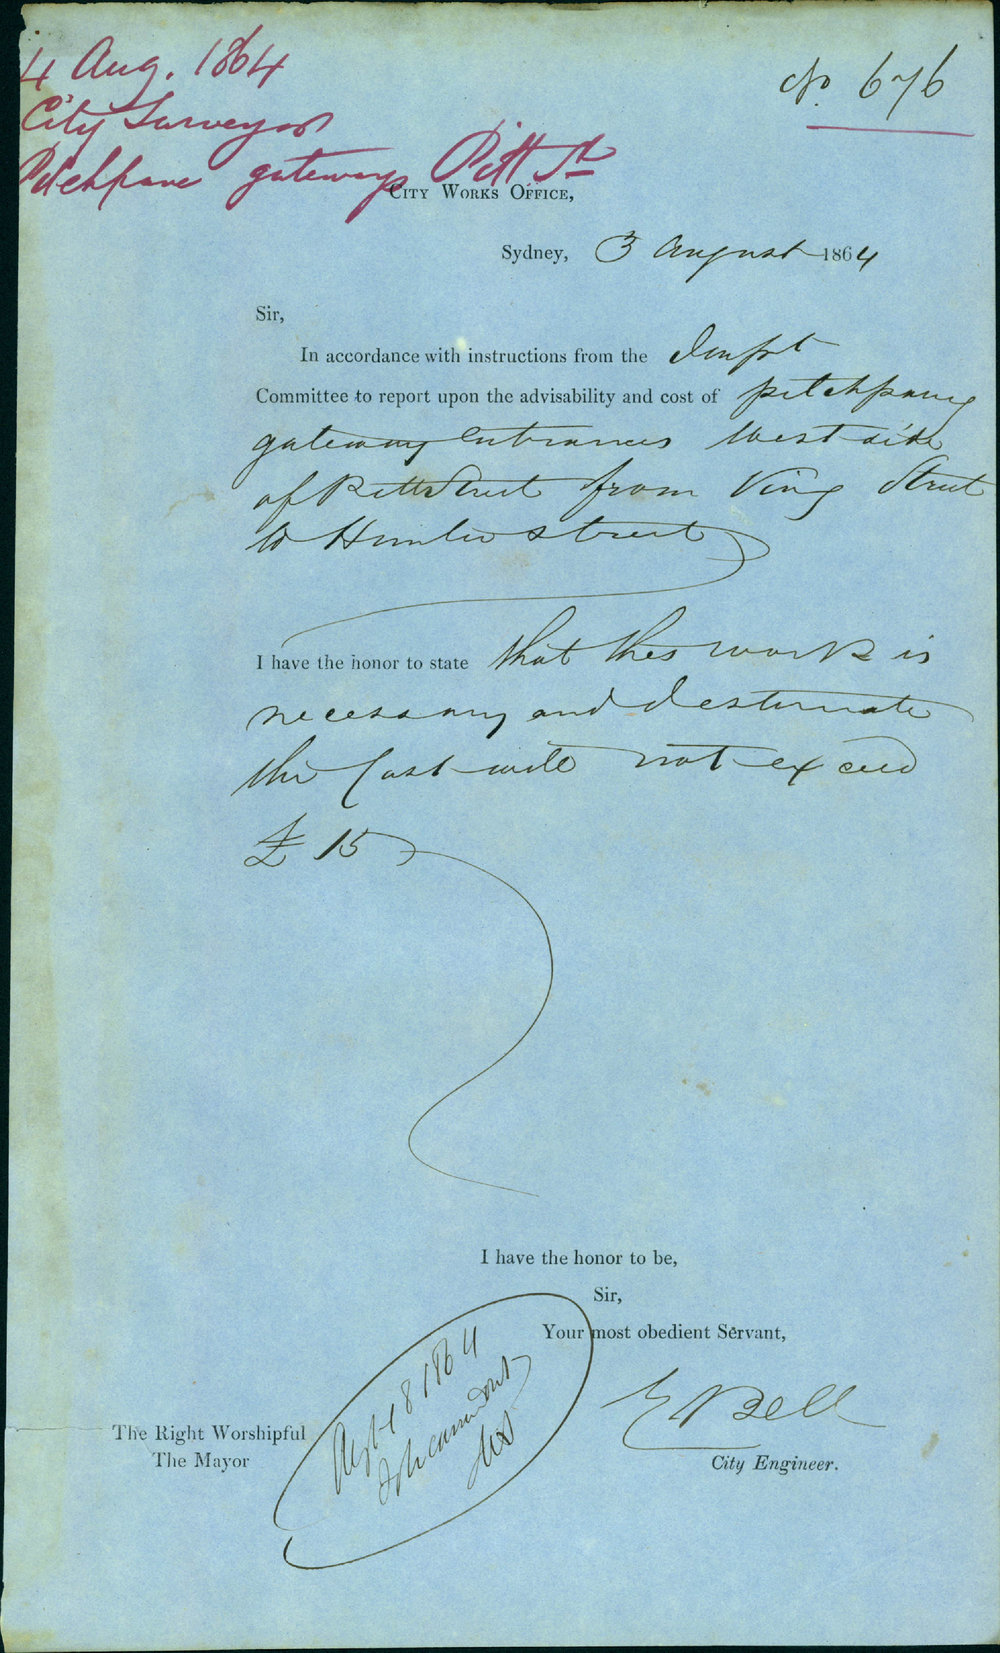 4 Aug. 1864
No. 676
City Surveyor
Pitchpave gateways Pitt St
City Works Office,
Sydney, 3 August 1864
Sir,
In accordance with instructions from the Impt
Committee to report upon the advisability and cost of pitchpaving
gateway entrances West side
of Pitt Street from King Street
to Hunter Street
I have the honor to state that this work is
necessary and I estimate
the Cost will not exceed
£ 15
I have the honor to be,
Sir,
Your most obedient Servant,
E Bell
City Engineer.
The Right Worshipful
The Mayor
1864